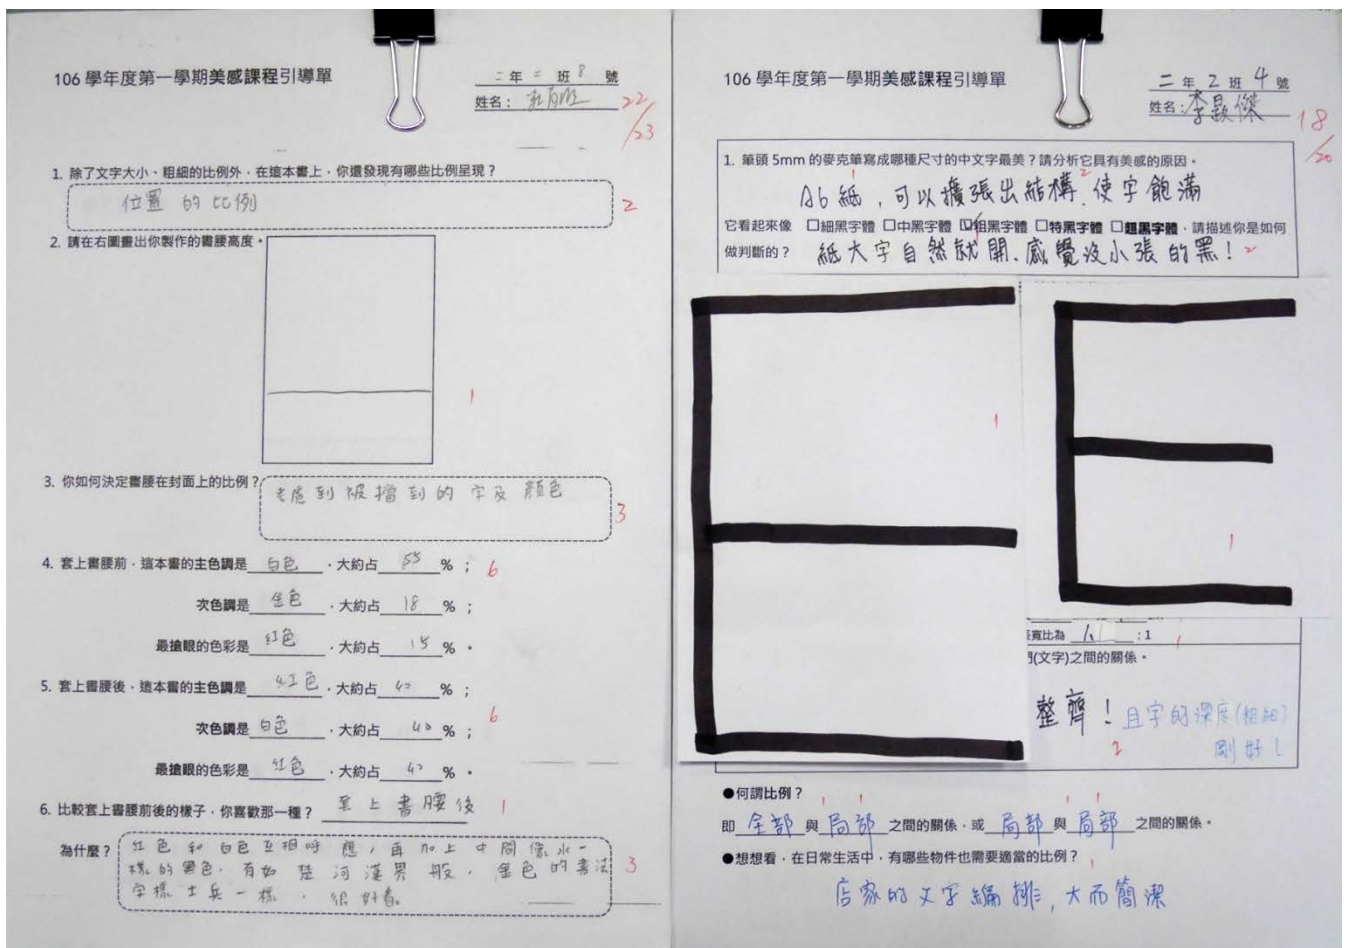 106 學年度第一學期美感課程引導單
二 年 二 班 8 號
姓名：
22/23
1. 除了文字大小、粗細的比例外，在這本書上，你還發現有哪些比例呈現？
位置 的 比例
2
2. 請在右圖畫出你製作的書腰高度。
1
3. 你如何決定書腰在封面上的比例？
考慮到被擋到的字及顏色
3
4. 套上書腰前，這本書的主色調是 白色 ，大約占 55 %；
6
次色調是 金色 ，大約占 18 %；
最搶眼的色彩是 紅色 ，大約占 15 %。
5. 套上書腰後，這本書的主色調是 紅色 ，大約占 40 %；
6
次色調是 白色 ，大約占 40 %；
最搶眼的色彩是 紅色 ，大約占 40 %。
6. 比較套上書腰前後的樣子，你喜歡那一種？ 套上書腰後
1
為什麼？ 紅色和白色互相呼應，再加上中間像水一
樣的黑色，有如楚河漢界般，金色的書法
字樣士兵一樣，很好看。
3
106 學年度第一學期美感課程引導單
二 年 2 班 4 號
姓名：李顥傑
18/20
1. 筆頭 5mm 的麥克筆寫成哪種尺寸的中文字最美？請分析它具有美感的原因。
1 2
A6紙，可以擴張出結構、使字飽滿
它看起來像 □細黑字體 □中黑字體 ☑粗黑字體 □特黑字體 □超黑字體，請描述你是如何
做判斷的？ 紙大字自然就開、感覺沒小張的黑！ 2
1
1
寬比為 :1
1
(文字)之間的關係。
整齊！且字的深度(粗細)
剛好！
2
●何謂比例？
1 1 1 1
即 全部 與 局部 之間的關係，或 局部 與 局部 之間的關係。
●想想看，在日常生活中，有哪些物件也需要適當的比例？
1
店家的文字編排，大而簡潔